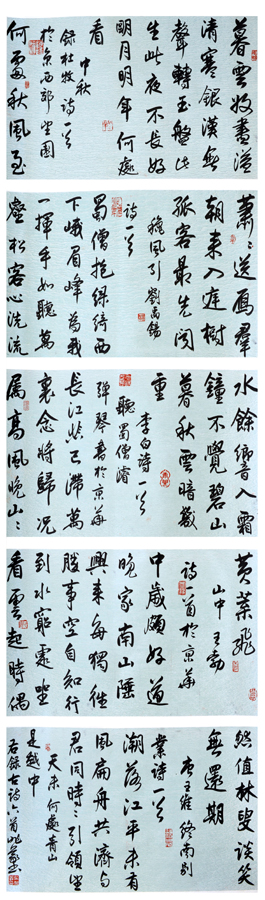 暮雲收盡溢
清寒銀漢無
聲轉玉盤此
生此夜不長好
明月明年何處
看
中秋
錄杜牧詩一首
於京西郊望園
何處秋風至
蕭〻送雁群
朝來入庭樹
孤客最先聞
秋風引 劉禹錫
詩一首
蜀僧抱綠綺西
下峨眉峰為我
一揮手如聽萬
壑松客心洗流
水餘響入霜
鐘不覺碧山
暮秋雲暗幾
重
李白詩一首
聽蜀僧濬
彈琴書於京華
長江悲已滯萬
裏念將歸況
屬高風晚山〻
黃葉飛
山中 王勃
詩一首於京華
中歲頗好道
晚家南山陲
興來每獨往
勝事空自知行
到水窮處坐
看雲起時偶
然值林叟談笑
無還期
唐王維終南別
業詩一首
潮落江平未有
風扁舟共濟與
君同時〻引領望
天末何處青山
是越中
右錄古詩六首